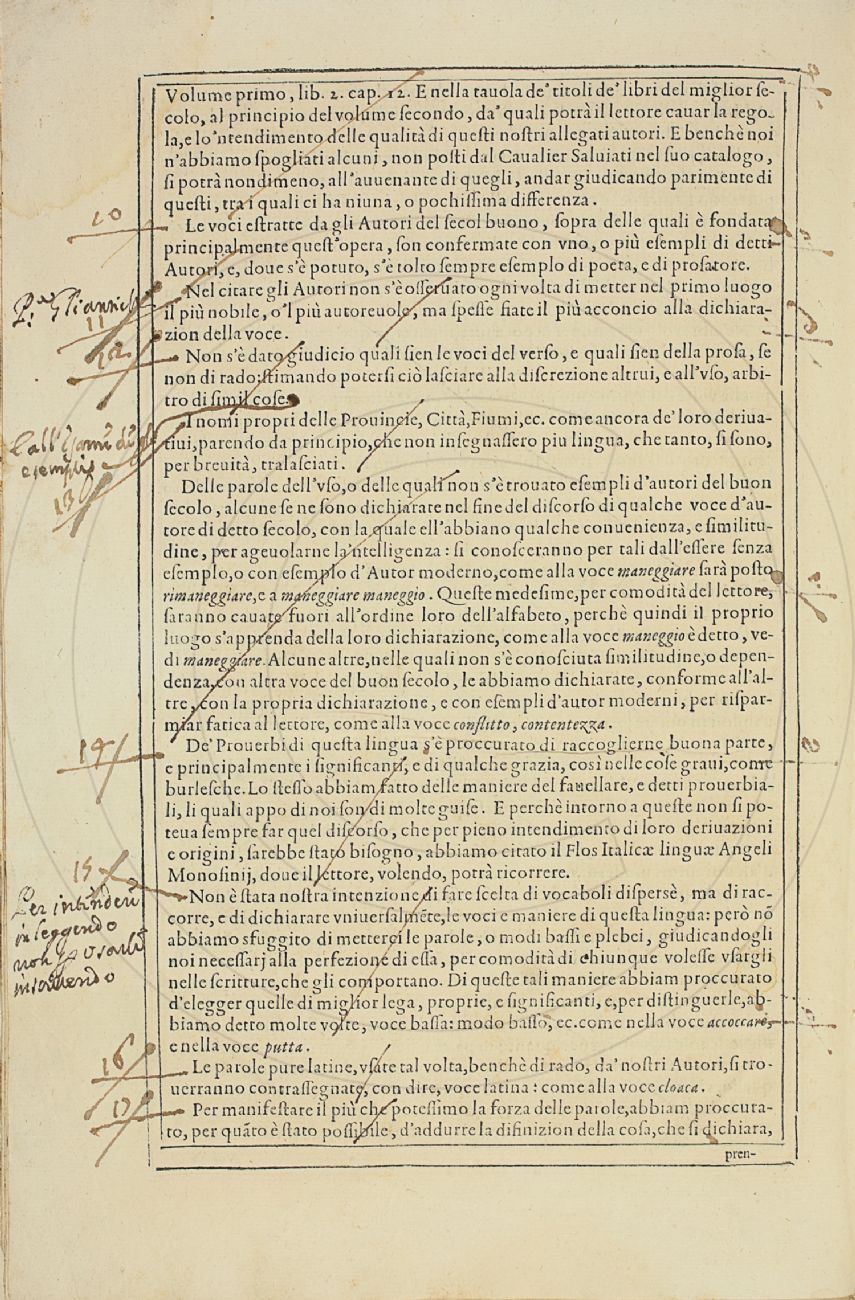 Volume primo, lib. 2. cap. 12. E nella tauola de' titoli de' libri del miglior ſe-
colo, al principio del volume ſecondo, da' quali potrà il lettore cauar la rego-
la, e lo 'ntendimento delle qualità di queſti noſtri allegati autori. E benchè noi
n'abbiamo ſpogliati alcuni, non poſti dal Caualier Saluiati nel ſuo catalogo,
ſi potrà nondimeno, all'auuenante di quegli, andar giudicando parimente di
queſti, tra i quali ci ha niuna, o pochiſſima differenza.
10
Le voci eſtratte da gli Autori del ſecol buono, ſopra delle quali è fondata
principalmente queſt'opera, ſon confermate con vno, o più eſempli di detti
Autori, e, doue s'è potuto, s'è tolto ſempre eſempio di poeta, e di proſatore.
11
Nel citare gli Autori non s'è oſſeruato ogni volta di metter nel primo luogo
il più nobile, o 'l più autoreuole, ma ſpeſſe fiate il più acconcio alla dichiara-
zion della voce.
12
Non s'è dato giudicio quali ſien le voci del verſo, e quali ſien della proſa, ſe
non di rado: ſtimando poterſi ciò laſciare alla diſcrezione altrui, e all'vſo, arbi-
tro di ſimil coſe.
13
I nomi propri delle Prouincie, Città, Fiumi, ec. come ancora de' loro deriua-
tiui, parendo da principio, che non inſegnaſſero piu lingua, che tanto, ſi ſono,
per breuità, tralaſciati.
Delle parole dell'vſo, o delle quali non s'è trouato eſempli d'autori del buon
ſecolo, alcune ſe ne ſono dichiarate nel fine del diſcorſo di qualche voce d'au-
tore di detto ſecolo, con la quale ell'abbiano qualche conuenienza, e ſimilitu-
dine, per ageuolarne la 'ntelligenza: ſi conoſceranno per tali dall'eſſere ſenza
eſemplo, o con eſemplo d'Autor moderno, come alla voce maneggiare ſarà poſto
rimaneggiare, e a maneggiare maneggio. Queſte medeſime, per comodità del lettore,
ſaranno cauate fuori all'ordine loro dell'alfabeto, perchè quindi il proprio
luogo s'apprenda della loro dichiarazione, come alla voce maneggio è detto, ve-
di maneggiare. Alcune altre, nelle quali non s'è conoſciuta ſimilitudine, o depen-
denza, con altra voce del buon ſecolo, le abbiamo dichiarate, conforme all'al-
tre, con la propria dichiarazione, e con eſempli d'autor moderni, per riſpar-
miar fatica al lettore, come alla voce conflitto, contentezza.
14
De' Prouerbi di queſta lingua s'è proccurato di raccoglierne buona parte,
e principalmente i ſignificanti, e di qualche grazia, così nelle coſe graui, come
burleſche. Lo ſteſſo abbiam fatto delle maniere del fauellare, e detti prouerbia-
li, li quali appo di noi ſon di molte guiſe. E perchè intorno a queſte non ſi po-
teua ſempre far quel diſcorſo, che per pieno intendimento di loro deriuazioni
e origini, ſarebbe ſtato biſogno, abbiamo citato il Flos Italicæ linguæ Angeli
Monoſinij, doue il lettore, volendo, potrà ricorrere.
15
Per intendere
in leggendo
non p usarli
in scriuendo
Non è ſtata noſtra intenzione di fare ſcelta di vocaboli diſpersè, ma di rac-
corre, e di dichiarare vniuerſalmẽte, le voci e maniere di queſta lingua: però nõ
abbiamo sfuggito di metterci le parole, o modi baſſi e plebei, giudicandogli
noi neceſſarj alla perfezione di eſſa, per comodità di chiunque voleſſe vſargli
nelle ſcritture, che gli comportano. Di queſte tali maniere abbiam proccurato
d'elegger quelle di miglior lega, proprie, e ſignificanti, e, per diſtinguerle, ab-
biamo detto molte volte, voce baſſa: modo baſſo, ec. come nella voce accoccare,
e nella voce putta.
16
Le parole pure latine, vſate tal volta, benchè di rado, da' noſtri Autori, ſi tro-
uerranno contraſſegnate, con dire, voce latina: come alla voce cloaca.
17
Per manifeſtare il più che poteſſimo la forza delle parole, abbiam proccura-
to, per quãto è ſtato poſſibile, d'addurre la difinizion della coſa, che ſi dichiara,
pren-